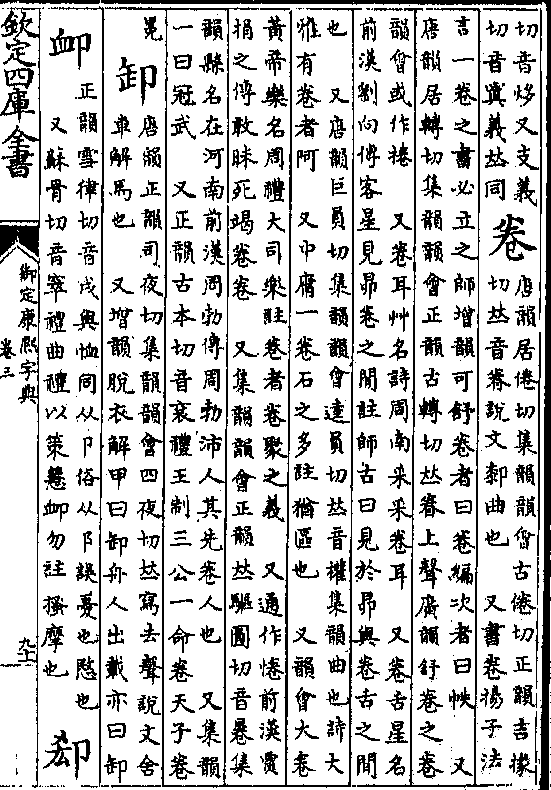 切音烙又支義
切音寘義𠀤同
卷
唐韻居倦切集韻韻會古倦切正韻吉掾
切𠀤音眷說文䣛曲也 又書卷揚子法
言一卷之書必立之師增韻可舒卷者曰卷編次者曰帙 又
唐韻居轉切集韻韻會正韻古轉切𠀤眷上聲廣韻舒卷之卷
韻會或作捲 又卷耳艸名詩周南采采卷耳 又卷舌星名
前漢劉向傳客星見昴卷之閒註師古曰見於昴與卷舌之閒
也 又唐韻巨員切集韻韻會逵員切𠀤音權集韻曲也詩大
雅有卷者阿 又中庸一卷石之多註猶區也 又韻會大卷
黃帝樂名周禮大司樂註卷者卷聚之義 又通作惓前漢賈
捐之傳敢昧死竭卷卷 又集韻韻會正韻𠀤驅圓切音棬集
韻縣名在河南前漢周勃傳周勃沛人其先卷人也 又集韻
一曰冠武 又正韻古本切音袞禮王制三公一命卷天子卷
冕
卸
唐韻正韻司夜切集韻韻會四夜切𠀤寫去聲說文舍
車解馬也 又增韻脫衣解甲曰卸舟人出載亦曰卸
卹
正韻雪律切音戌與恤同从卩俗从阝誤憂也愍也
又蘇骨切音窣禮曲禮以策彗卹勿註搔摩也
卻
欽定四庫全書
御定康熙字典
卷三
九十